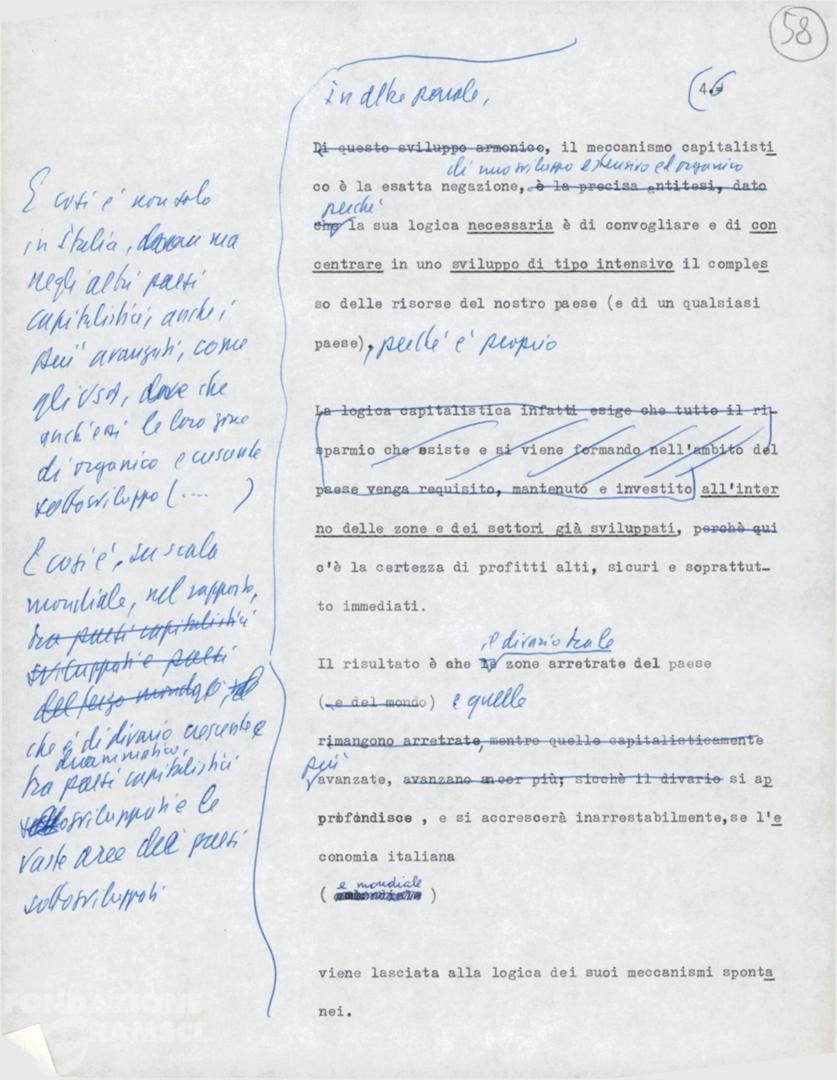 58
In altre parole,
4.
6
Di questo sviluppo armonico, il meccanismo capitalisti
di uno sviluppo estensivo ed organico
co è la esatta negazione, è la precisa antitesi, dato
perché
che la sua logica necessaria è di convogliare e di con
centrare in uno sviluppo di tipo intensivo il comples
so delle risorse del nostro paese (e di un qualsiasi
paese), perché è proprio
La logica capitalistica infatti esige che tutto il ri-
sparmio che esiste e si viene formando nell'ambito del
paese venga requisito, mantenuto e investito all'inter
no delle zone e dei settori già sviluppati, perchè qui
c'è la certezza di profitti alti, sicuri e soprattut-
to immediati.
il divario tra le
Il risultato è che le zone arretrate del paese
( e del mondo) e quelle
rimangono arretrate, mentre quelle capitalisticamente
più
avanzate, avanzano ancor più; sicchè il divario si ap
profondisce , e si accrescerà inarrestabilmente,se l'e
conomia italiana
e mondiale
( )
viene lasciata alla logica dei suoi meccanismi sponta
nei.
E così è non solo
in Italia, ma
negli altri paesi
capitalistici, anche i
più avanzati, come
gli USA, che
anch'essi le loro zone
di organico e crescente
sottosviluppo (.... )
E così è, su scala
mondiale, nel rapporto,
tra paesi capitalistici
sviluppati e paesi
del terzo mondo
che è di divario crescente e
drammatico,
tra paesi capitalistici
sviluppati e le
vaste aree dei paesi
sottosviluppati
FONDAZIONE
GRAMSCI